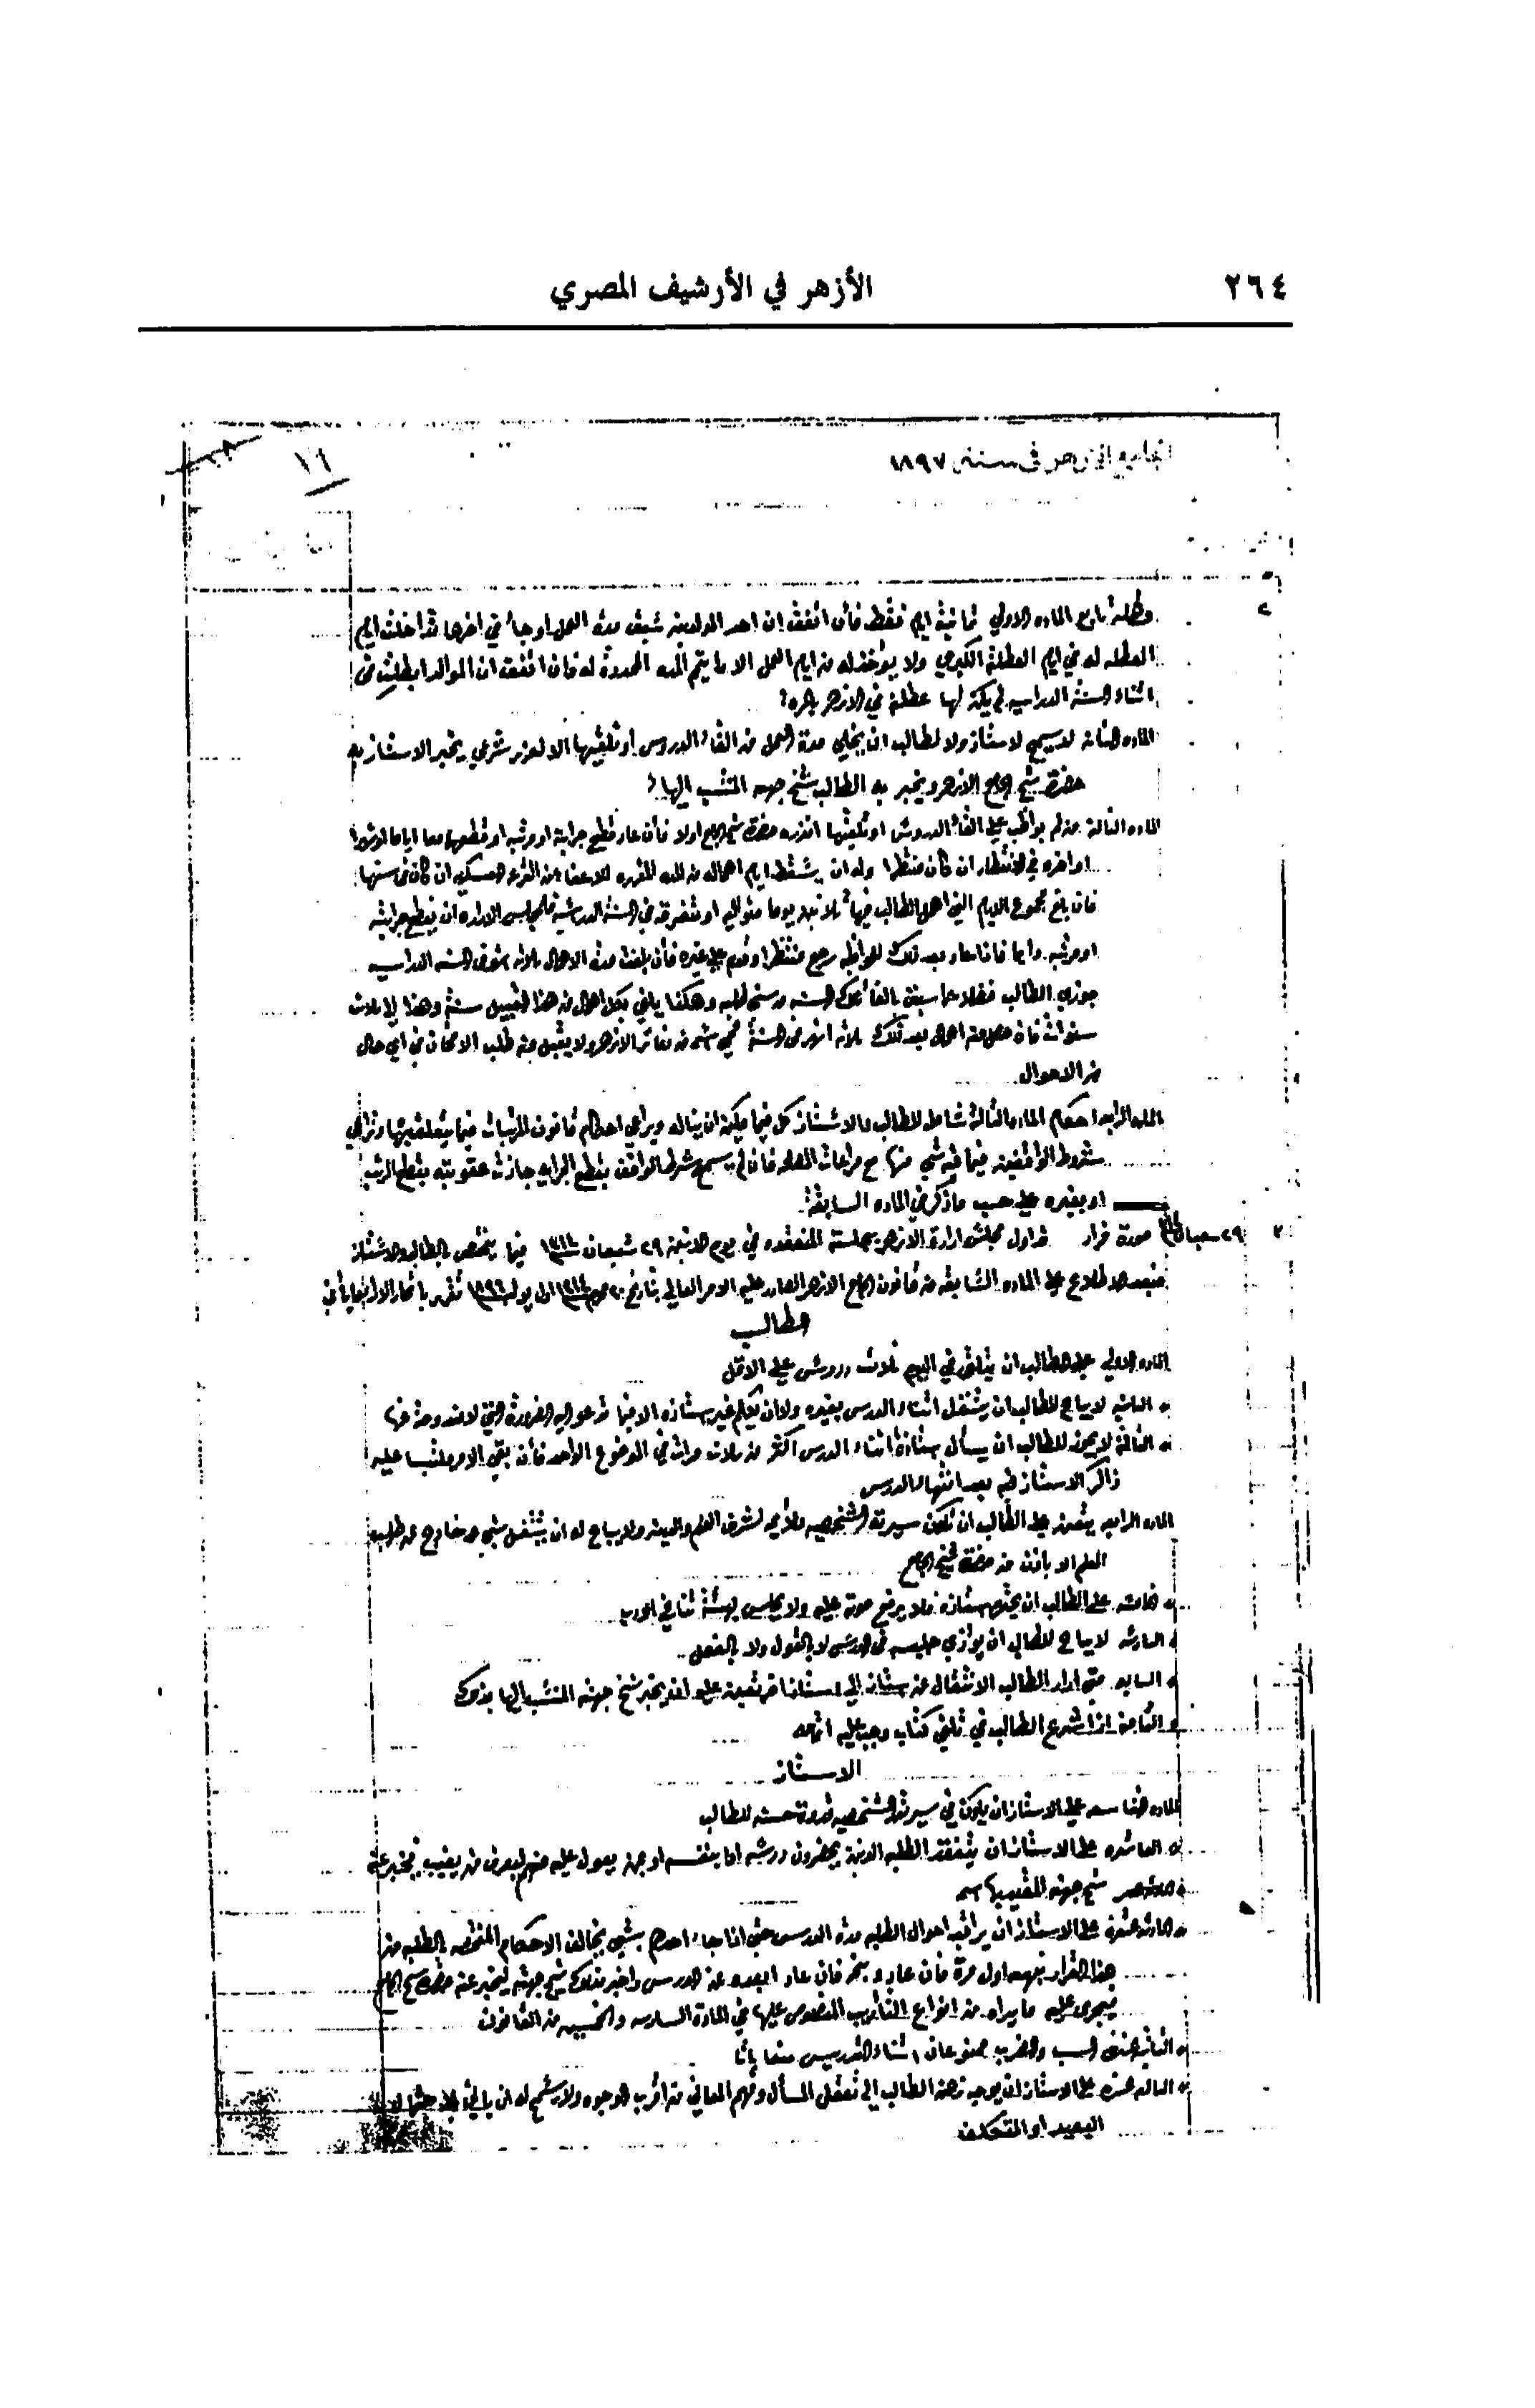 ٢٦٤
الأزهر في الأرشيف المصري
الجامع الازهر في سنة ١٨٩٧
١٦
ثمانية ايام فقط فأن اتفق ان احد المولدين سبق مدة العمل او جاء في اخرها تداخلت ايام
العطله له في ايام العطلة الكبرى ولا يؤخذ له من ايام العمل الا ما يتم المده المحدودة له فان اتفق ان الموالد ابطلت في
اثناء السنة الدراسيه لم يكن لها عطلة في الازهر بالمره
الماده الثانيه لا يسمح لاستاذ ولا لطالب ان يخلي مدة العمل من القاء الدروس او تلقيها الا لعذر شرعي يخبر الاستاذ به
حضرة شيخ الجامع الازهر ويخبر به الطالب شيخ جهته المنتسب اليها
الماده الثالثة من لم يواظب على القاء الدروس او تلقيها انذره حضرة شيخ الجامع اولا فأن عاد قطع جرايته او مرتبه او قطعهما معا اياما او شهرا
او اخره في الانتظار ان كان منتظرا وله ان يسقط ايام اهماله من المده المقرره للاعفاء من القرعه العسكريه ان كان في سنها
فان بلغ مجموع الايام التي اهمل الطالب فيها ثلاثين يوما متواليه او متفرقه في السنة الدراسية فلمجلس الاداره ان يقطع جرايته
او مرتبه دائما فاذا عاد بعد ذلك للمواظبه رجع منتظرا وقدم عليه غيره فأن بلغت مدة الاهمال ثلاثه شهور في السنه الدراسيه
جوزي الطالب فضلا عما سبق بالغاء تلك السنه من سني طلبه وهكذا يلغي بكل اهمال من هذا القبيل سنة وهذا الى ثلاث
سنوات فان حصل منه اهمال بعد ذلك ثلاثه اشهر في السنة محي اسمه من دفاتر الازهر ولا يقبل منه طلب الامتحان في أي حال
من الاحوال
الماده الرابعه احكام الماده الثالثة شامله للطالب والاستاذ كل فيما يمكن ان يناله ويراعي احكام قانون المرتبات فيما يتعلق بها وتراعي
شروط الواقفين فيما فيه شئ منها مع مراعات المصلحه فان لم يسمح شرط الواقف بقطع الجرايه جازت عقوبته بقطع المرتب
او بغيره على حسب ما ذكر في الماده السابقة
٢٩ شعبان ١٣١٤ صورة قرار قرر اول مجلس ادارة الازهر بجلسته المنعقده في يوم الاثنين ٢٩ شعبان ١٣١٤ فيما يختص بالطالب والاستاذ
فبعد الاطلاع على الماده السابقه من قانون الجامع الازهر الصادر عليه الامر العالي بتاريخ ٢٠ محرم ١٣١٤ اول يوليه ١٨٩٦ تقرر باتحاد الاراء ما يأتي
الطالب
الماده الاولى على الطالب ان يتلقى في اليوم ثلاث دروس على الاقل
الثانيه لا يباح للطالب ان يشتغل اثناء الدرس بغيره ولا ان يكلم غير استاذه الا فيما تدعو اليه الضرورة التي لا مندوحة عنها
الثالثة لا يجوز للطالب ان يسأل استاذه اثناء الدرس اكثر من ثلاث مرات في الموضوع الواحد فأن بقي الامر ملتبسا عليه
ذاكر الاستاذ فيه بعد انتهاء الدرس
الماده الرابعه يتعين على الطالب ان تكون سيرته الشخصيه ملائمه لشرف العلم والدين ولا يباح له ان يشتغل بشئ خارج عن طلب
العلم الا باذن من حضرة شيخ الجامع
الخامسه على الطالب ان يحترم استاذه فلا يرفع صوته عليه ولا يجلس بهيئة تنافي الادب
السادسه لا يباح للطالب ان يؤذي جليسه في الدرس لا بالقول ولا بالفعل
السابعه متى اراد الطالب الانتقال من استاذ الى استاذ اخر تعين عليه ان يخبر شيخ جهته المنتسب اليها بذلك
الثامنة اذا شرع الطالب في تلقي كتاب وجب عليه اتمامه
الاستاذ
الماده التاسعه على الاستاذ ان يكون في سيرته الشخصيه قدوة حسنه للطالب
العاشره على الاستاذ ان يتفقد الطلبه الذين يحضرون درسه اما بنفسه او بمن يعول عليه منهم ليعرف من يغيب فيخبر عنه
شيخ جهته المنتسب اليها
الحاديه عشرة على الاستاذ ان يراقب احوال الطلبه مدة الدرس حتى اذا جاء احدهم بشئ يخالف الاحكام المختصه بالطلبه من
هذا القرار نبهه اول مرة فان عاد زجره فان عاد ابعده عن الدرس واخبر بذلك شيخ جهته ليخبر عنه حضرة شيخ الجامع
فيجري عليه ما يراه من انواع التأديب المنصوص عليها في المادة السادسه والخمسين من القانون
الثانيه عشره السب والضرب ممنوعان اثناء التدريس منعا باتا
الثالثه عشره على الاستاذ ان يوجه ذهن الطالب الى تعقل المسائل وفهم المعاني من اقرب الوجوه ولا يسمح له ان يأتي
البعيد او المتكلف